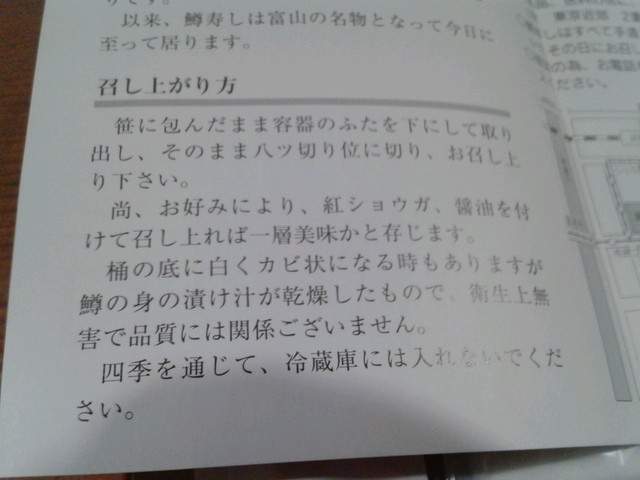 りです。
以来、鱒寿しは富山の名物となって今日に
至って居ります。
召し上がり方
笹に包んだまま容器のふたを下にして取り
出し、そのまま八ツ切り位に切り、お召し上
り下さい。
尚、お好みにより、紅ショウガ、醤油を付
けて召し上れば一層美味かと存じます。
桶の底に白くカビ状になる時もありますが
鱒の身の漬け汁が乾燥したもので、衛生上無
害で品質には関係ございません。
四季を通じて、冷蔵庫には入れないでくだ
さい。
東京近郊
しはすべて手造
その日にお召し
の為、お電話
ください。